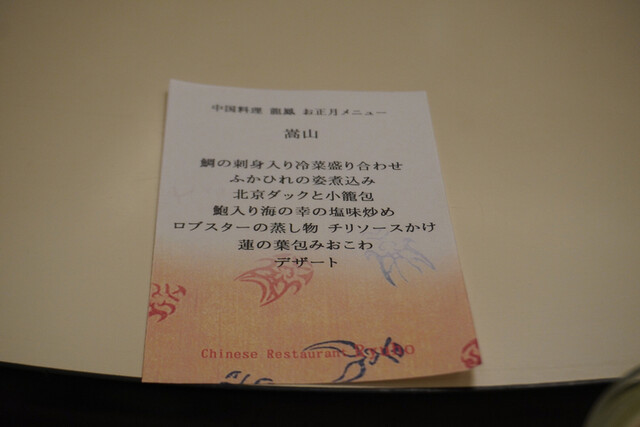 中国料理 龍鳳 お正月メニュー
嵩山
鯛の刺身入り冷菜盛り合わせ
ふかひれの姿煮込み
北京ダックと小籠包
鮑入り海の幸の塩味炒め
ロブスターの蒸し物 チリソースかけ
蓮の葉包みおこわ
デザート
Chinese Restaurant